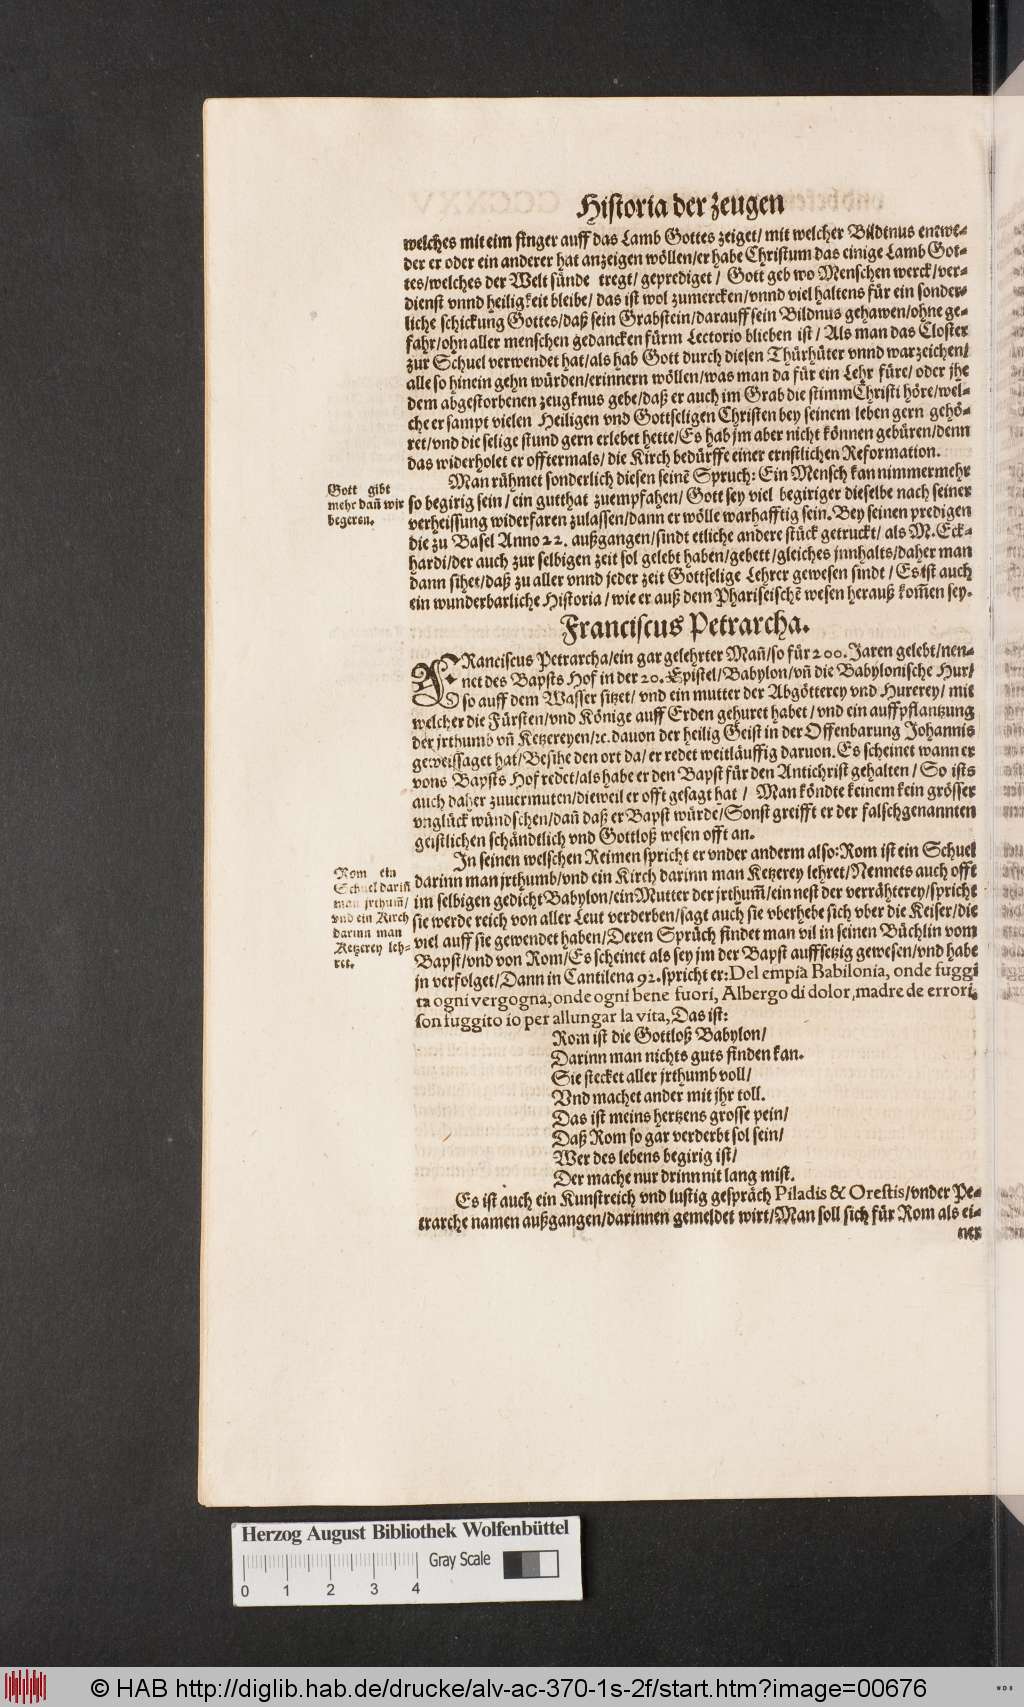 Historia der zeugen
welches mit eim finger auff das Lamb Gottes zeiget/ mit welcher Bildtnus entwe-
der er oder ein anderer hat anzeigen wöllen/er habe Christum das einige Lamb Got-
tes/welches der Welt sünde tregt/ geprediget / Gott geb wo Menschen werck/ver-
dienst vnnd heiligkeit bleibe/ das ist wol zumercken/vnnd viel haltens für ein sonder-
liche schickung Gottes/daß sein Grabstein/darauff sein Bildnus gehawen/ohne ge-
fahr/ohn aller menschen gedancken fürm Lectorio blieben ist/ Als man das Closter
zur Schuel verwendet hat/als hab Gott durch diesen Thürhüter vnnd warzeichen/
alle so hinein gehn würden/erinnern wöllen/was man da für ein Lehr füre/ oder jhe
dem abgestorbenen zeugknus gebe/daß er auch im Grab die stimm Christi höre/wel-
che er sampt vielen Heiligen vnd Gottseligen Christen bey seinem leben gern gehö-
ret/vnd die selige stund gern erlebet hette/Es hab jm aber nicht können gebüren/denn
das widerholet er offtermals/ die Kirch bedürffe einer ernstlichen Reformation.
Man rühmet sonderlich diesen seinē Spruch: Ein Mensch kan nimmermehr
Gott gibt
mehr dañ wir
begeren.
so begirig sein/ ein gutthat zuempfahen/ Gott sey viel begiriger dieselbe nach seiner
verheissung widerfaren zulassen/dann er wölle warhafftig sein. Bey seinen predigen
die zu Basel Anno 22. außgangen/sindt etliche andere stück getruckt/ als M. Eck-
hardi/der auch zur selbigen zeit sol gelebt haben/gebett/gleiches jnnhalts/daher man
dann sihet/daß zu aller vnnd jeder zeit Gottselige Lehrer gewesen sindt / Es ist auch
ein wunderbarliche Historia / wie er auß dem Phariseischē wesen herauß kom̄en sey.
Franciscus Petrarcha.
FRanciscus Petrarcha/ein gar gelehrter Mañ/so für 200. Jaren gelebt/nen-
net des Bapsts Hof in der 20. Epistel/Babylon/vñ die Babylonische Hur/
so auff dem Wasser sitzet/ vnd ein mutter der Abgötterey vnd Hurerey/ mit
welcher die Fürsten/vnd Könige auff Erden gehuret habet / vnd ein auffpflantzung
der jrthumb vñ Ketzereyen/ꝛc. dauon der heilig Geist in der Offenbarung Johannis
geweissaget hat/Besihe den ort da/ er redet weitläuffig daruon. Es scheinet wann er
vons Bapsts Hof redet/als habe er den Bapst für den Antichrist gehalten / So ists
auch daher zuuermuten/dieweil er offt gesagt hat / Man köndte keinem kein grösser
vnglück wündschen/dañ daß er Bapst würde/Sonst greifft er der falschgenannten
geistlichen schändtlich vnd Gottloß wesen offt an.
In seinen welschen Reimen spricht er vnder anderm also: Rom ist ein Schuel
Rom ein
Schuel dariñ
man jrthum̄/
vnd ein Kirch
darinn man
Ketzerey leh-
ret.
darinn man jrthumb/vnd ein Kirch darinn man Ketzerey lehret/Nennets auch offt
im selbigen gedicht Babylon/ein Mutter der jrthum̄/ein nest der verrähterey/spricht
sie werde reich von aller Leut verderben/sagt auch sie vberhebe sich vber die Keiser/die
viel auff sie gewendet haben/Deren Sprüch findet man vil in seinen Büchlin vom
Bapst/vnd von Rom/Es scheinet als sey jm der Bapst auffsetzig gewesen/vnd habe
jn verfolget/Dann in Cantilena 92. spricht er: Del empia Babilonia, onde fuggi
ta ogni vergogna, onde ogni bene fuori, Albergo di dolor, madre de errori,
son fuggito io per allungar la vita, Das ist:
Rom ist die Gottloß Babylon/
Darinn man nichts guts finden kan.
Sie stecket aller jrthumb voll/
Vnd machet ander mit jhr toll.
Das ist meins hertzens grosse pein/
Daß Rom so gar verderbt sol sein/
Wer des lebens begirig ist/
Der mache nur drinn nit lang mist.
Es ist auch ein Kunstreich vnd lustig gespräch Piladis & Orestis/vnder Pe-
trarche namen außgangen/darinnen gemeldet wirt/Man soll sich für Rom als ei-
ner
Herzog August Bibliothek Wolfenbüttel
Gray Scale
0 1 2 3 4
© HAB http://diglib.hab.de/drucke/alv-ac-370-1s-2f/start.htm?image=00676